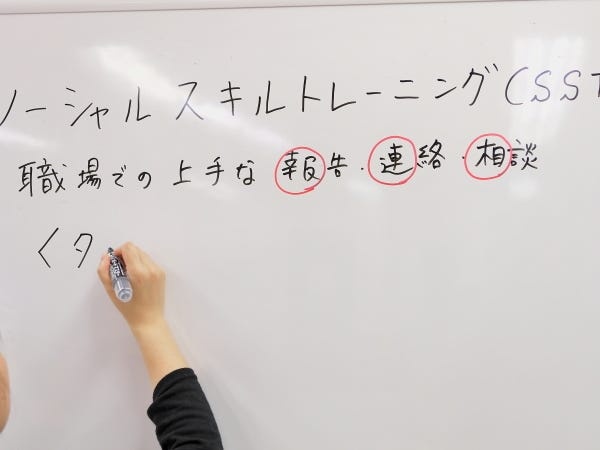 ソーシャルスキルトレーニング(SST
職場での上手な 報告・連絡・相談
<タ